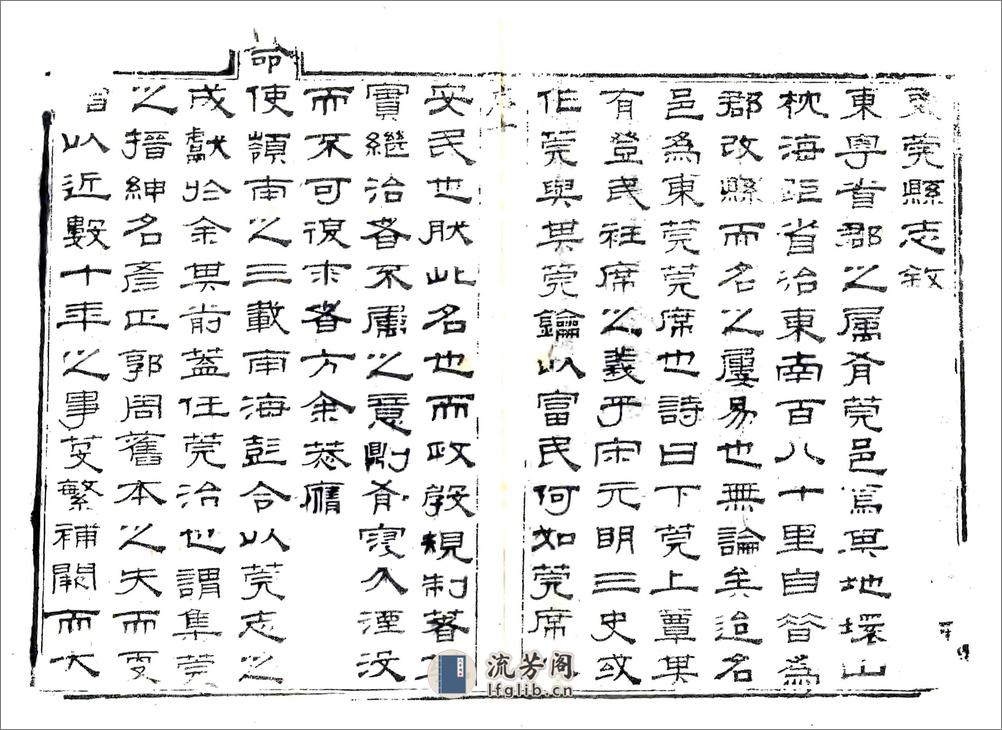 東莞縣志敘
東粵省郡之属有莞邑焉其地環山
枕海距省治東南百八十里自晉為
郡改縣而名之屢易也無論矣迨名
邑為東莞莞席也詩曰下莞上蕈果
有登民袵席之義乎宋元明三史或
作莞與其莞鑰以富民何如莞席
序
安民也肰此名也而政教規制著
實繼治者不属之意則有寖入湮汶
而不可復求者方余恭膺
命
使嶺南之三載南海彭合以莞志之
成獻於余其前蓋任莞治也謂集莞
之搢紳名彥正郭周舊本之失而更
以近數十年之事芟繁補闕而大
流芳阁
lfglib.cn